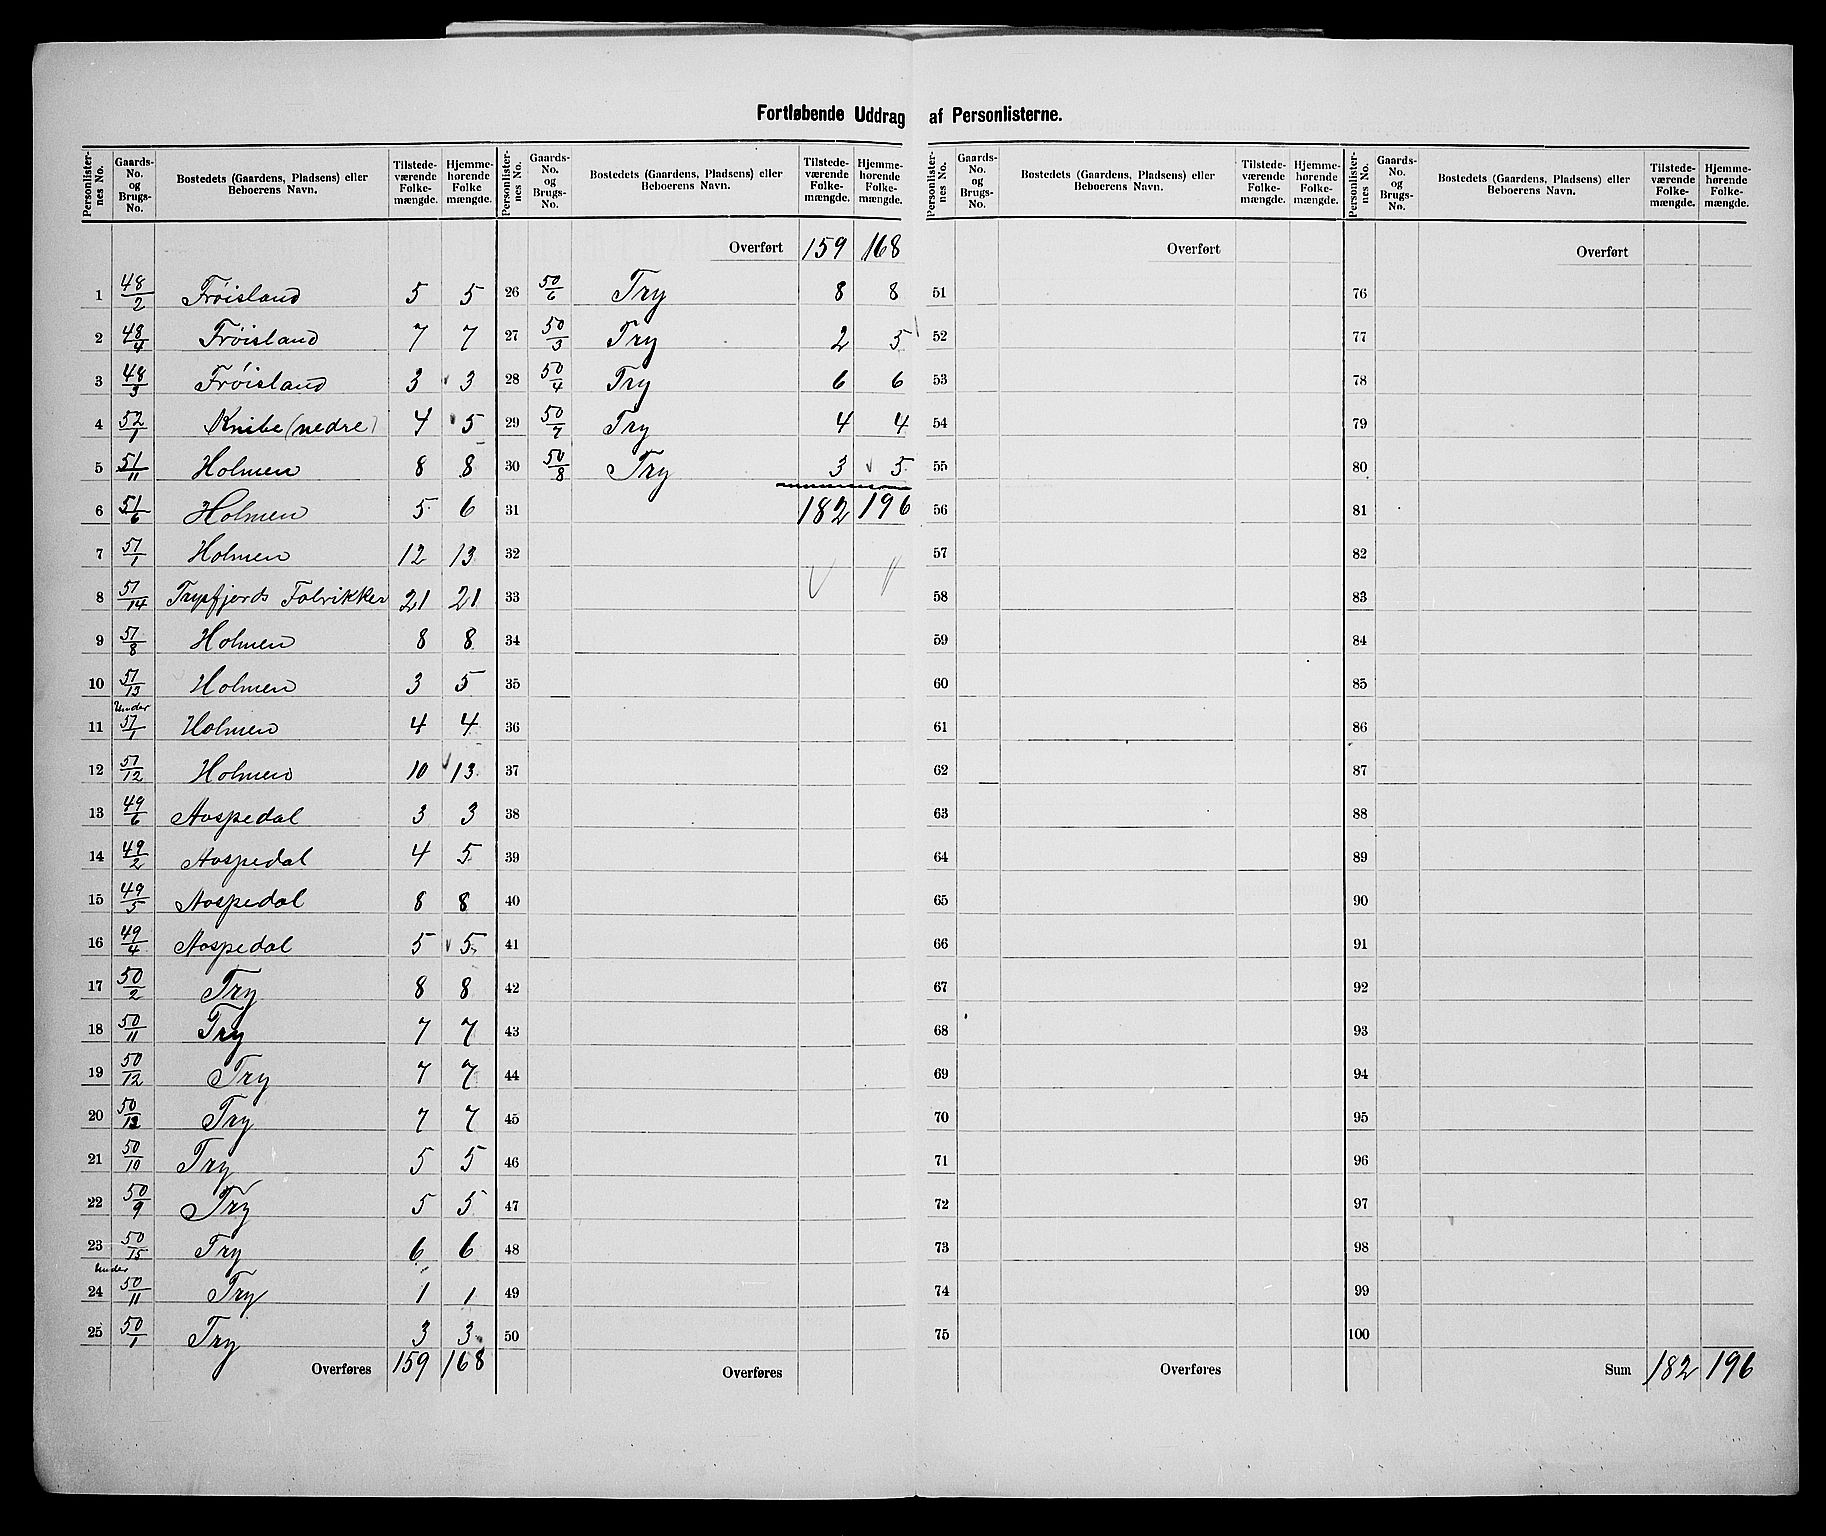 Fortløbende Uddrag af Personlisterne.
Personlister-nes No. | Gaards-No. og Brugs-No. | Bostedets (Gaardens, Pladsens) eller Beboerens Navn. | Tilstede-værende Folke-mængde. | Hjemme-hørende Folke mængde.
1 48/2 Frøisland 5 5
2 48/4 Frøisland 7 7
3 48/3 Frøisland 3 3
4 52/1 Knibe (nedre) 4 5
5 51/11 Holmen 8 8
6 51/6 Holmen 5 6
7 51/1 Holmen 12 13
8 51/14 Trysfjords Fabrikker 21 21
9 51/8 Holmen 8 8
10 51/13 Holmen 3 5
11 Under 51/1 Holmen 4 4
12 51/12 Holmen 10 13
13 49/6 Aaspedal 3 3
14 49/2 Aaspedal 4 5
15 49/5 Aaspedal 8 8
16 49/4 Aaspedal 5 5
17 50/2 Try 8 8
18 50/11 Try 7 7
19 50/12 Try 7 7
20 50/13 Try 7 7
21 50/10 Try 5 5
22 50/9 Try 5 5
23 50/15 Try 6 6
24 Under 50/11 Try 1 1
25 50/1 Try 3 3
Overføres 159 168
Personlister-nes No. | Gaards-No. og Brugs-No. | Bostedets (Gaardens, Pladsens) eller Beboerens Navn. | Tilstede-værende Folke-mængde. | Hjemme-hørende Folke-mængde.
Overført 159 168
26 50/6 Try 8 8
27 50/3 Try 2 5
28 50/4 Try 6 6
29 50/7 Try 4 4
30 50/8 Try 3 5
31 182 196
32
33
34
35
36
37
38
39
40
41
42
43
44
45
46
47
48
49
50
Overføres
Personlister-nes No. | Gaards-No. og Brugs-No. | Bostedets (Gaardens, Pladsens) eller Beboerens Navn. | Tilstede-værende Folke-mængde. | Hjemme-hørende Folke-mængde.
Overført
51
52
53
54
55
56
57
58
59
60
61
62
63
64
65
66
67
68
69
70
71
72
73
74
75
Overføres
Personlister-nes No. | Gaards-No. og Brugs-No. | Bostedets (Gaardens, Pladsens) eller Beboerens Navn. | Tilstede-værende Folke-mængde. | Hjemme-hørende Folke-mængde.
Overført
76
77
78
79
80
81
82
83
84
85
86
87
88
89
90
91
92
93
94
95
96
97
98
99
100
Sum 182 196